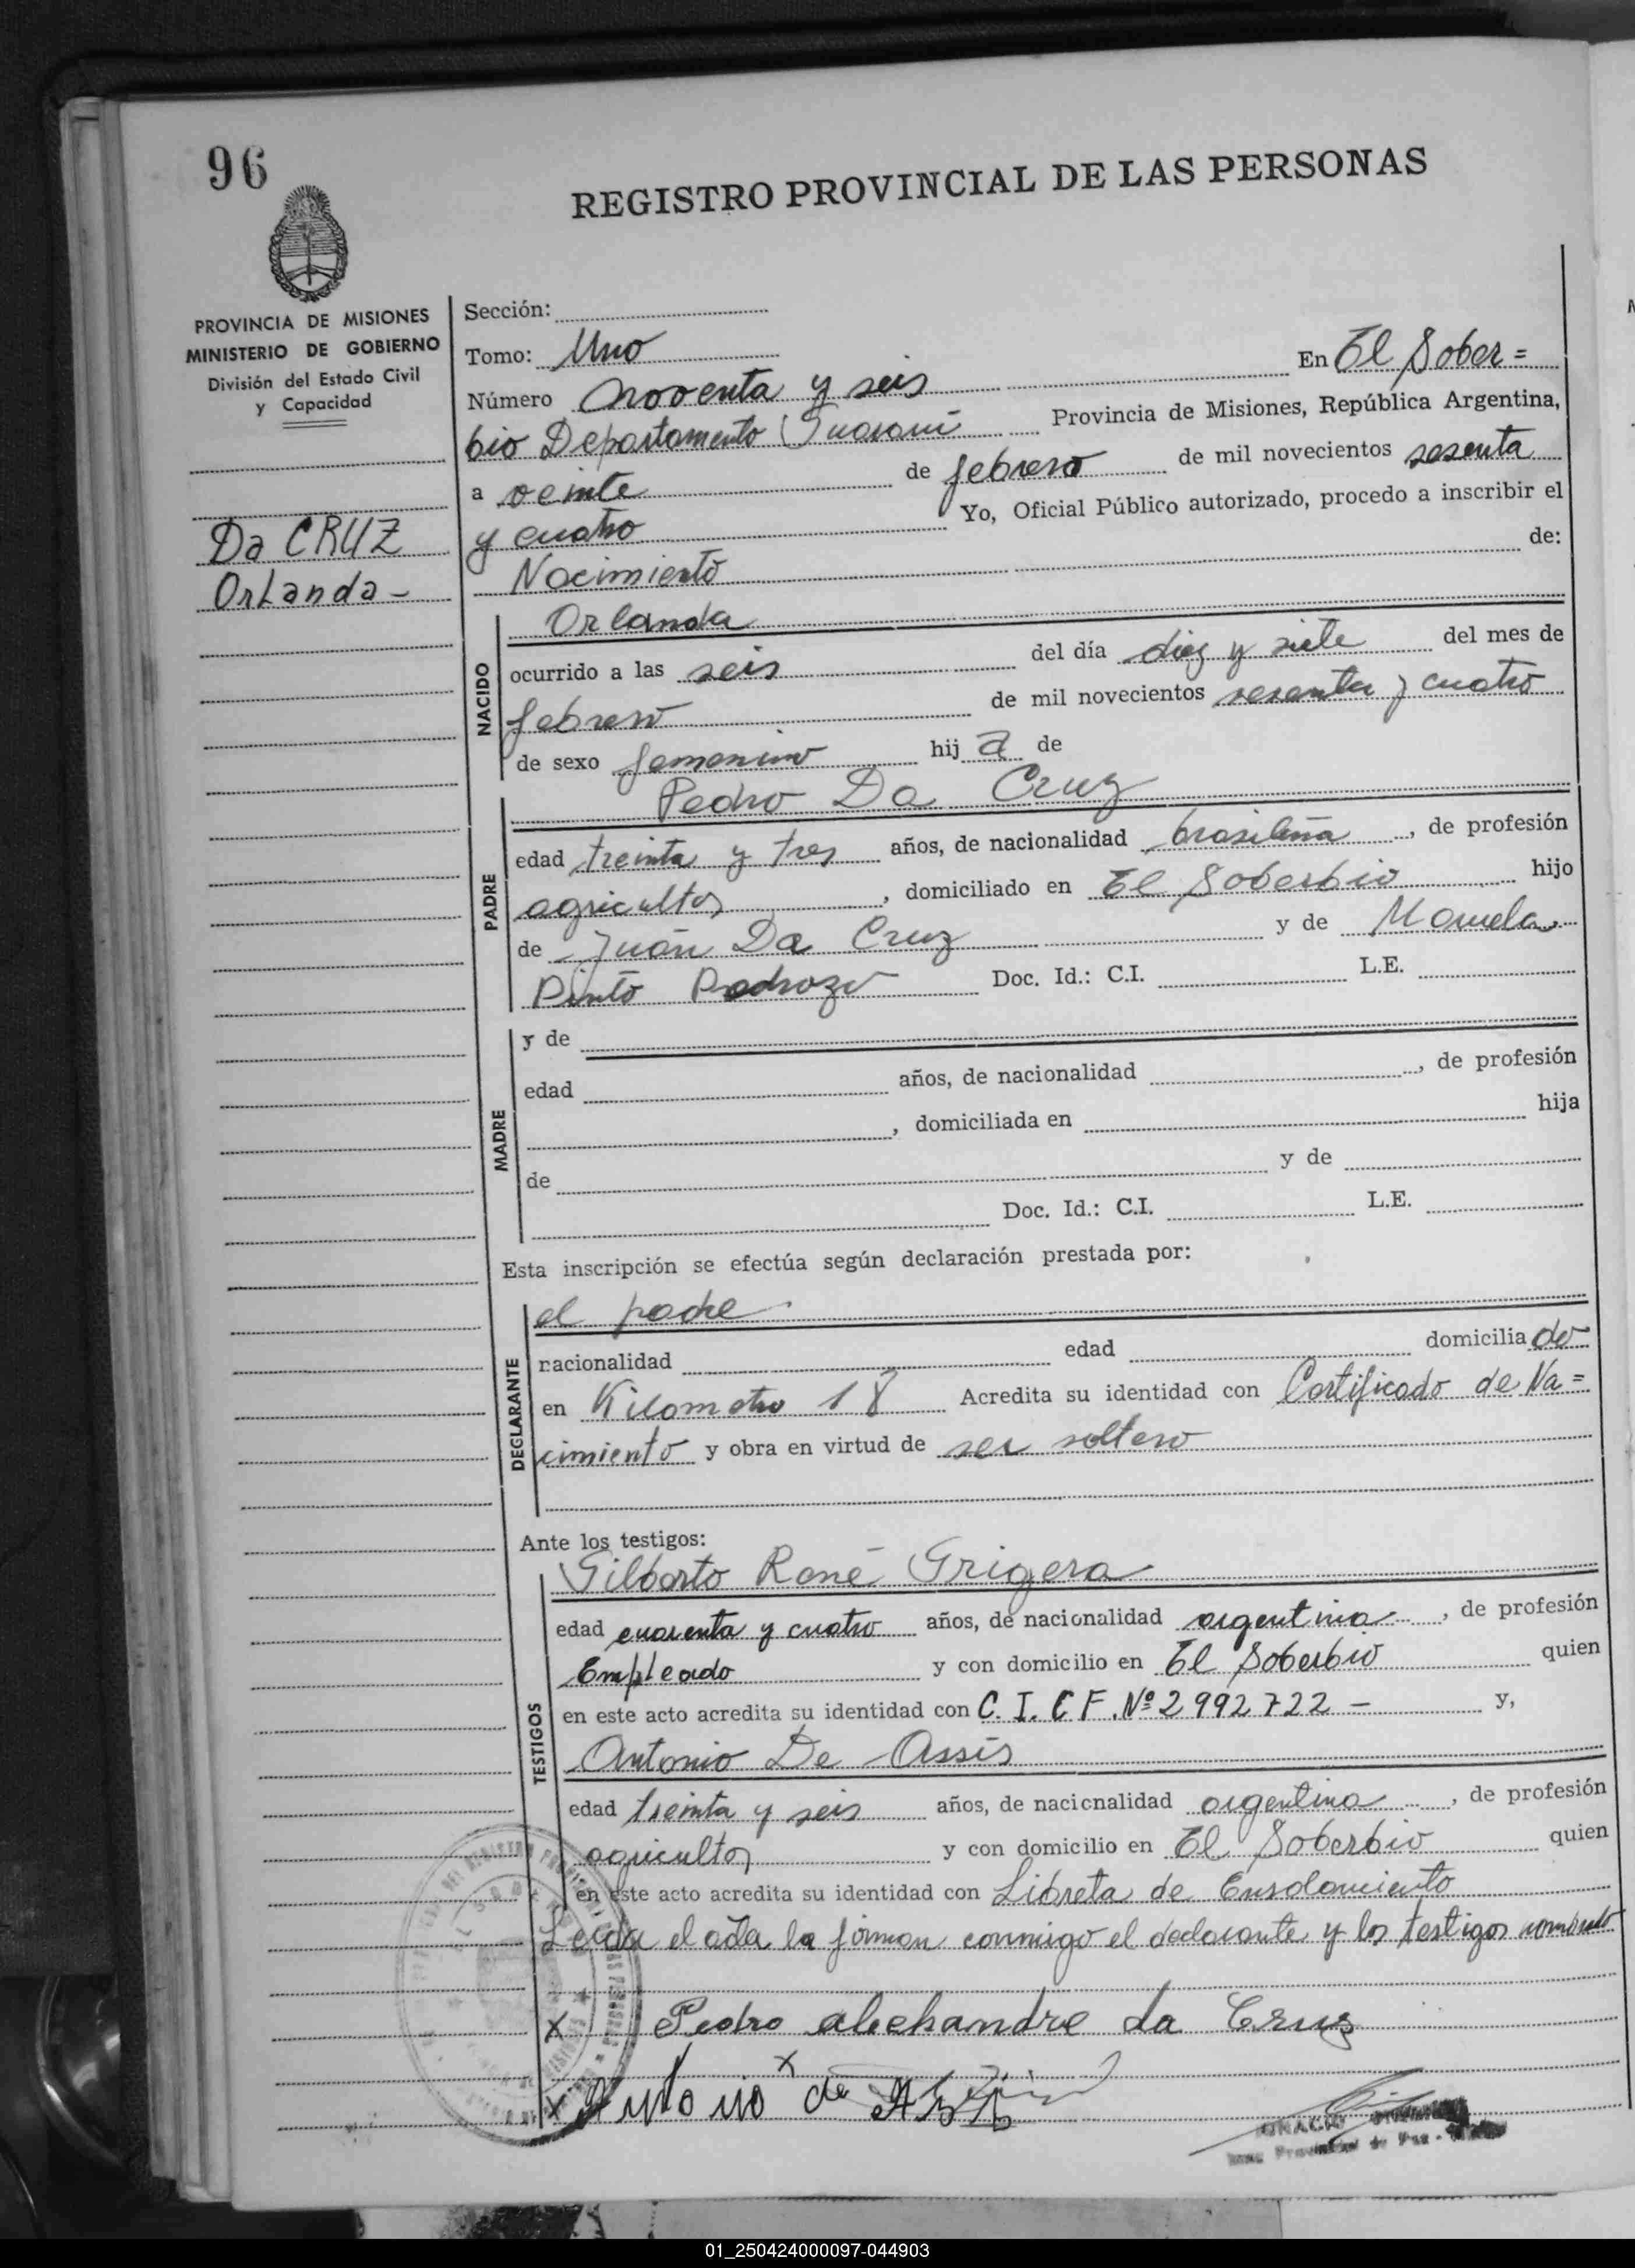 96
REGISTRO PROVINCIAL DE LAS PERSONAS
PROVINCIA DE MISIONES
MINISTERIO DE GOBIERNO
División del Estado Civil
y Capacidad
Da CRUZ
Orlanda -
Sección:
Tomo: Uno
Número noventa y seis En El Sober =
bio Departamento Guaraní Provincia de Misiones, República Argentina,
a veinte de febrero de mil novecientos sesenta
y cuatro Yo, Oficial Público autorizado, procedo a inscribir el
Nacimiento de:
NACIDO
Orlanda
ocurrido a las seis del día diez y siete del mes de
febrero de mil novecientos sesenta y cuatro
de sexo femenino hij a de
PADRE
Pedro Da Cruz
edad treinta y tres años, de nacionalidad brasileña, de profesión
agricultor, domiciliado en El Soberbio hijo
de Juan Da Cruz y de Manuela
Pinto Pedrozo Doc. Id.: C.I. L.E.
MADRE
y de
edad años, de nacionalidad , de profesión
, domiciliada en hija
de y de
Doc. Id.: C.I. L.E.
Esta inscripción se efectúa según declaración prestada por:
DECLARANTE
el padre
nacionalidad edad domicilia do
en Kilometro 18 Acredita su identidad con Certificado de Na =
cimiento y obra en virtud de ser soltero
Ante los testigos:
TESTIGOS
Gilberto René Grigera
edad cuarenta y cuatro años, de nacionalidad argentina, de profesión
Empleado y con domicilio en El Soberbio quien
en este acto acredita su identidad con C. I. C F. Nº 2992722 - y,
Antonio De Assis
edad treinta y seis años, de nacionalidad argentina, de profesión
agricultor y con domicilio en El Soberbio quien
en este acto acredita su identidad con Libreta de Enrolamiento
Leida el acta la firman conmigo el declarante y los testigos nombrados
X Pedro alechandre da Crus
X
X Antonio de
01_250424000097-044903